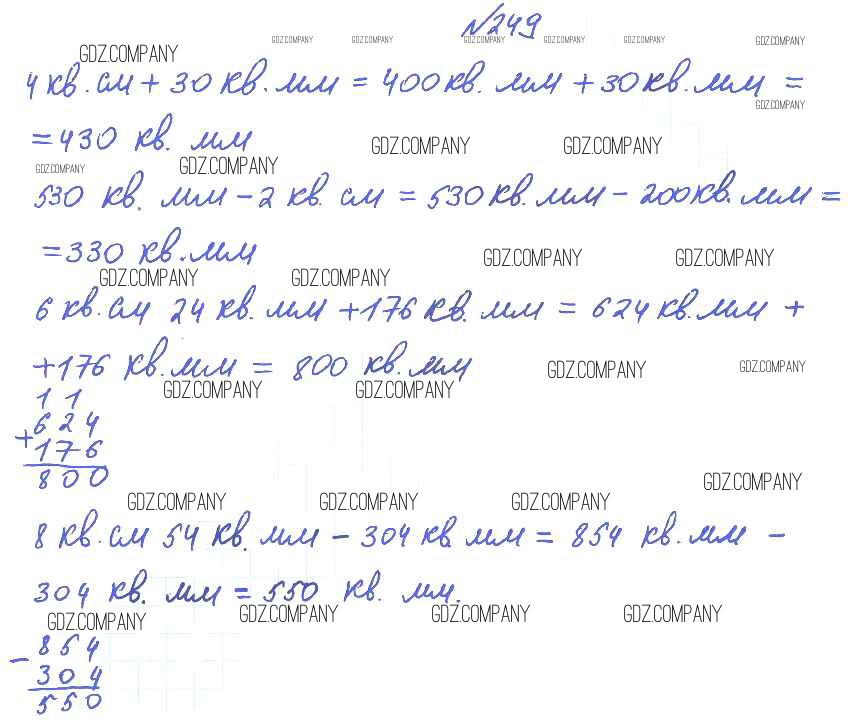 №249
GDZ.COMPANY GDZ.COMPANY GDZ.COMPANY GDZ.COMPANY GDZ.COMPANY GDZ.COMPANY
GDZ.COMPANY
4 кв. см + 30 кв. мм = 400 кв. мм + 30 кв. мм =
GDZ.COMPANY
= 430 кв. мм
GDZ.COMPANY GDZ.COMPANY
GDZ.COMPANY GDZ.COMPANY
530 кв. мм - 2 кв. см = 530 кв. мм - 200 кв. мм =
= 330 кв. мм
GDZ.COMPANY GDZ.COMPANY
GDZ.COMPANY GDZ.COMPANY
6 кв. см 24 кв. мм + 176 кв. мм = 624 кв. мм +
+ 176 кв. мм = 800 кв. мм
GDZ.COMPANY GDZ.COMPANY
GDZ.COMPANY GDZ.COMPANY
1 1
624
+
176
800
GDZ.COMPANY
GDZ.COMPANY GDZ.COMPANY GDZ.COMPANY
8 кв. см 54 кв. мм - 304 кв мм = 854 кв. мм -
304 кв. мм = 550 кв. мм.
GDZ.COMPANY GDZ.COMPANY GDZ.COMPANY GDZ.COMPANY
854
-
304
550